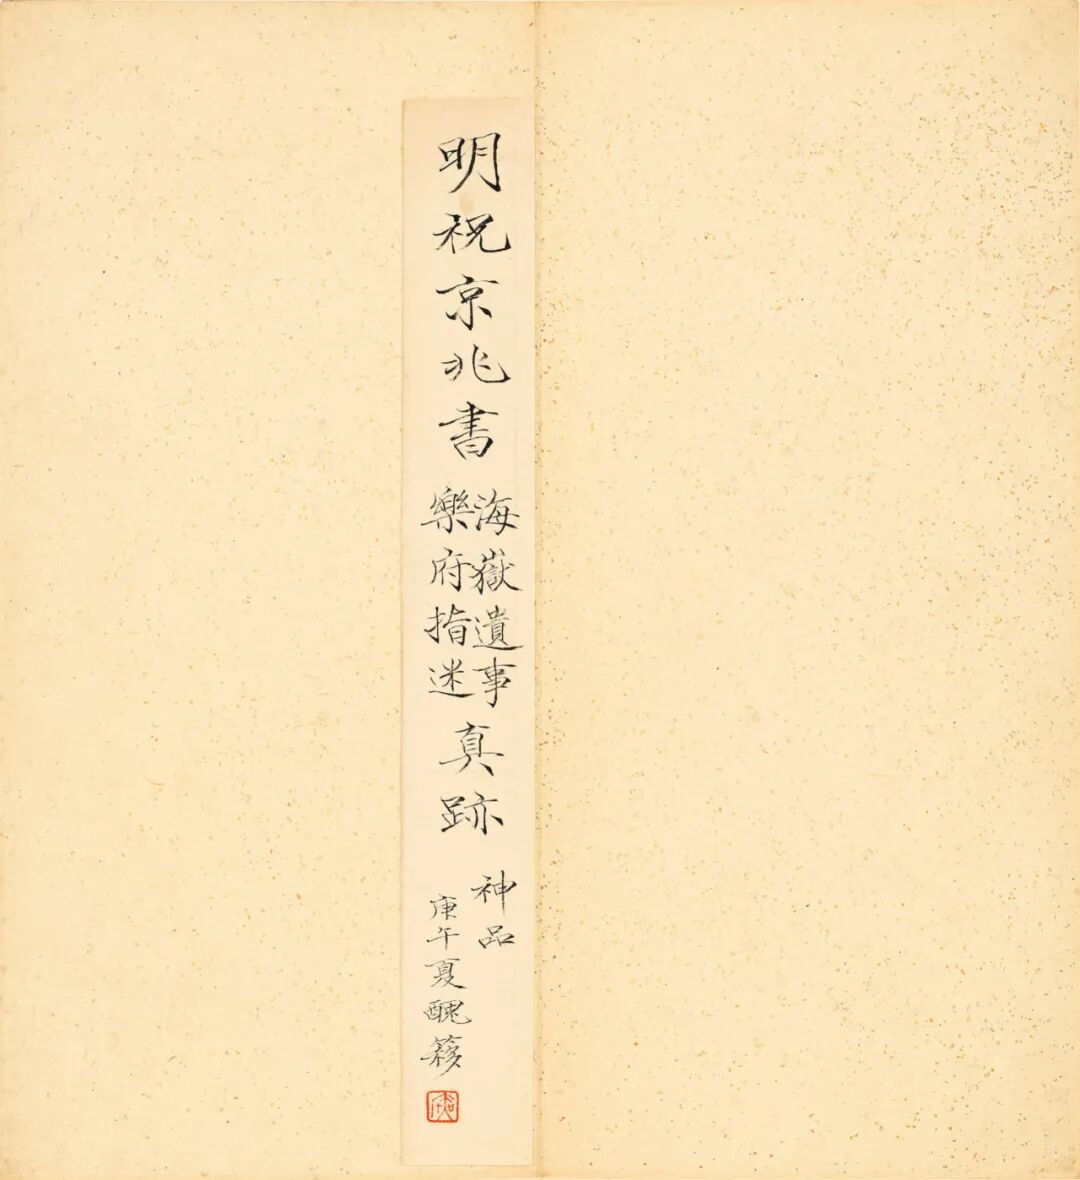 明祝京兆書
海嶽遺事
樂府指迷
真跡
神品
庚午夏醜簃